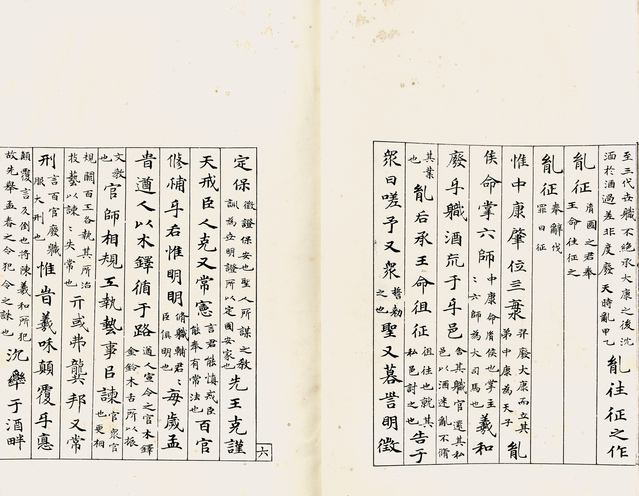 至三代世職不絶承大康之後沈
湎於酒過差非度廢天時亂甲乙 胤往征之作
胤征 胤國之君奉
王命往征之
胤征 奉辭伐
罪曰征
惟中康肇位三 羿廢大康而立其
弟中康為天子 胤
侯命掌六師 中康命胤侯也掌主
:六師為大司馬也 羲和
廢氒職酒荒于氒邑 舍其職官還其私
邑以酒迷亂不脩
其業
也 胤右承王命徂征 徂往也就其
私邑討之也 告于
衆曰嗟予又衆 誓勑
之也 聖又謩明徵
定保 徵證保安也聖人所謀之教
訓為立明證所以定國安家也 先王克謹
天戒臣人克又常憲 言君能慎戒臣
能奉有常法也 百官
修輔氒右惟明明 脩職輔君:
臣俱明也 毎歲孟
旹遒人以木鐸徇于路 遒人宣令之官木鐸
金鈴木舌所以振
文教
也 官師相規工執藝事㠯諫 官衆官
也更相
規闕百工各執其所治
技藝以諫:失常也 亓或弗龏邦又常
刑 言百官廢職
服大刑也 惟旹羲咊顛覆氒悳
顛覆言反倒也將陳羲和所犯
故先舉孟春之令犯令之誅也 沈于酒畔
六